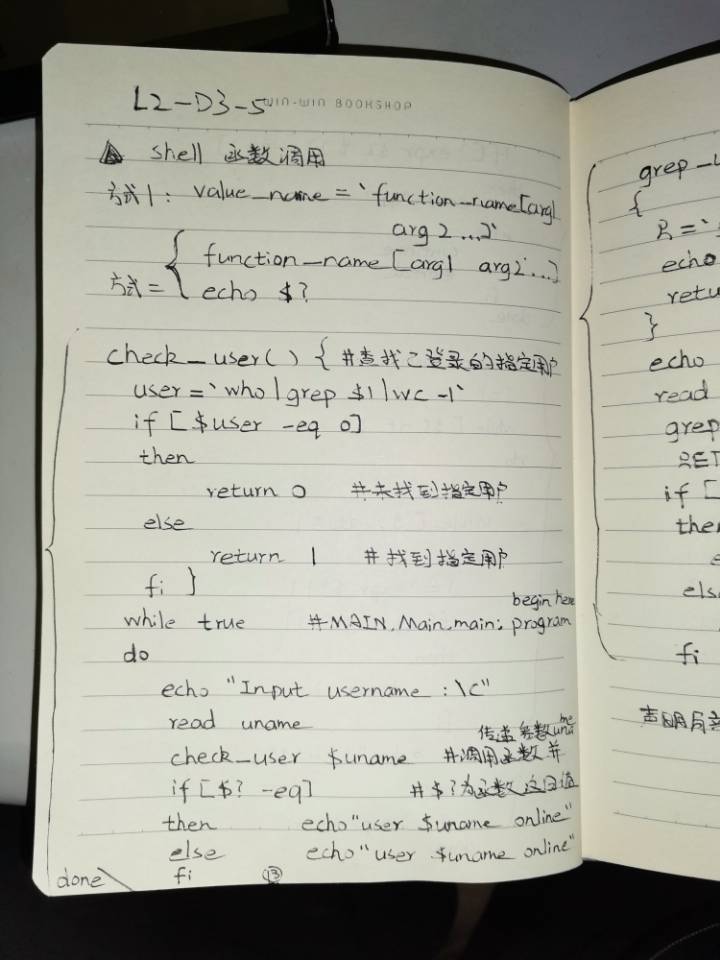 L2-D3-5
WIN-WIN BOOKSHOP
shell 函数调用
方式1: value_name = `function_name[arg1
arg2...]`
方式= function_name [arg1 arg2...]
echo $?
check_user() { #查找已登录的指定用户
user=`who|grep $1|wc -l`
if [$user -eq 0]
then
return 0 #未找到指定用户
else
return 1 #找到指定用户
fi }
begin here
while true #MAIN.Main.main: program
do
echo "Input username :\c"
read uname
传递参数uname
check_user $uname #调用函数并
if [$? -eq] #$?为函数返回值
then echo"user $uname online"
else echo"user $uname online"
done fi
13
grep_
{
R=`
echo
retu
}
echo
read
grep
RET
if [
then
e
else
fi
声明局